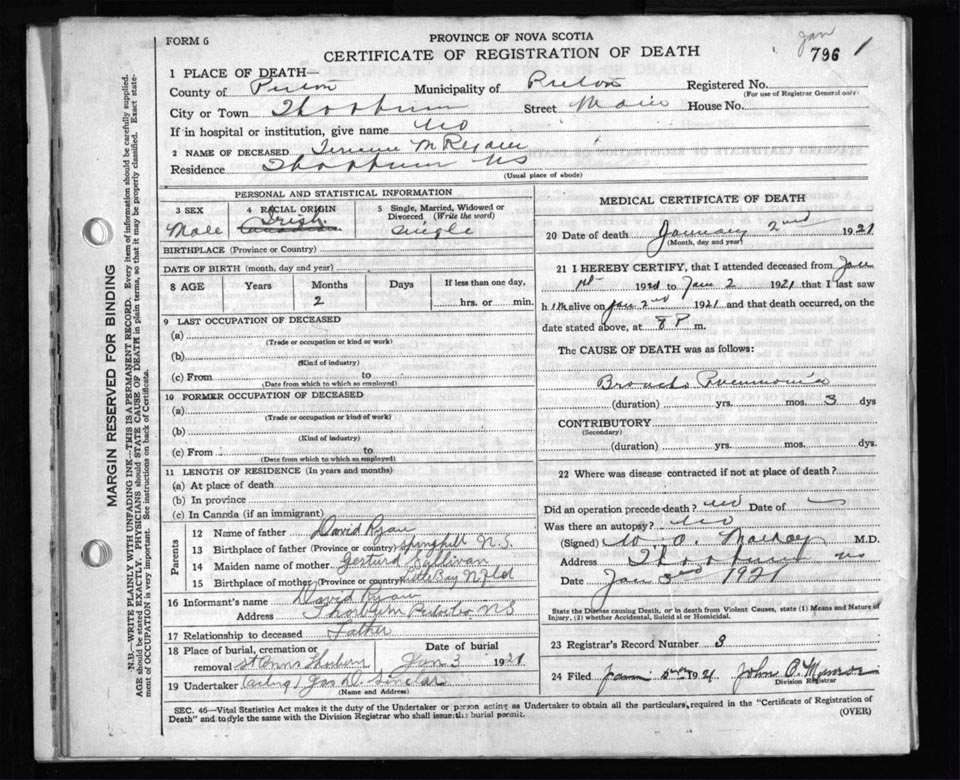 Jan
FORM 6
PROVINCE OF NOVA SCOTIA
CERTIFICATE OF REGISTRATION OF DEATH
796 1
1 PLACE OF DEATH—
County of Pictou Municipality of Pictou Registered No.
(For use of Registrar General only)
City or Town Thorburn Street Main House No.
If in hospital or institution, give name No
2 NAME OF DECEASED M Ryan
Residence Thorburn NS
(Usual place of abode)
PERSONAL AND STATISTICAL INFORMATION
3 SEX 4 RACIAL ORIGIN 5 Single, Married, Widowed or Divorced (Write the word)
Male Irish single
BIRTHPLACE (Province or Country)
DATE OF BIRTH (month, day and year)
8 AGE Years Months Days If less than one day,
2 hrs. or min.
9 LAST OCCUPATION OF DECEASED
(a)
(Trade or occupation or kind or work)
(b)
(Kind of industry)
(c) From to
(Date from which to which so employed)
10 FORMER OCCUPATION OF DECEASED
(a)
(Trade or occupation or kind of work)
(b)
(Kind of industry)
(c) From to
(Date from which to which so employed)
11 LENGTH OF RESIDENCE (In years and months)
(a) At place of death
(b) In province
(c) In Canada (if an immigrant)
Parents
12 Name of father David Ryan
13 Birthplace of father (Province or country) Springhill N.S.
14 Maiden name of mother Sullivan
15 Birthplace of mother (Province or country) Little Bay Nfld
16 Informant's name David Ryan
Address Thorburn Pictou Co NS
17 Relationship to deceased Father
18 Place of burial, cremation or removal St Anns Thorburn
Date of burial
Jan 3 1921
19 Undertaker (acting) Jas D. Sinclair
(Name and Address)
MEDICAL CERTIFICATE OF DEATH
20 Date of death January 2nd 1921
(Month, day and year)
21 I HEREBY CERTIFY, that I attended deceased from Jan
1st 1921 to Jan 2 1921 that I last saw
h im alive on Jan 2nd 1921 and that death occurred, on the
date stated above, at 8 P m.
The CAUSE OF DEATH was as follows:
Broncho Pneumonia
(duration) yrs. mos. 3 dys
CONTRIBUTORY
(Secondary)
(duration) yrs. mos. dys.
22 Where was disease contracted if not at place of death?
Did an operation precede death? No Date of —
Was there an autopsy? No
(Signed) W. A. M.D.
Address Thorburn NS
Date Jan 3rd 1921
State the Disease causing Death, or in death from Violent Causes, state (1) Means and Nature of
Injury, (2) whether Accidental, Suicidal or Homicidal.
23 Registrar's Record Number 3
24 Filed Jan 1921 John C. Munro
Division Registrar
SEC. 46—Vital Statistics Act makes it the duty of the Undertaker or person acting as Undertaker to obtain all the particulars required in the "Certificate of Registration of
Death" and to file the same with the Division Registrar who shall issue the burial permit.
(OVER)
MARGIN RESERVED FOR BINDING
N.B.—WRITE PLAINLY WITH UNFADING INK—THIS IS A PERMANENT RECORD. Every item of information should be carefully supplied.
AGE should be stated EXACTLY. PHYSICIANS should STATE CAUSE OF DEATH in plain terms, so that it may be properly classified. Exact statement of OCCUPATION is very important. See instructions on back of Certificate.